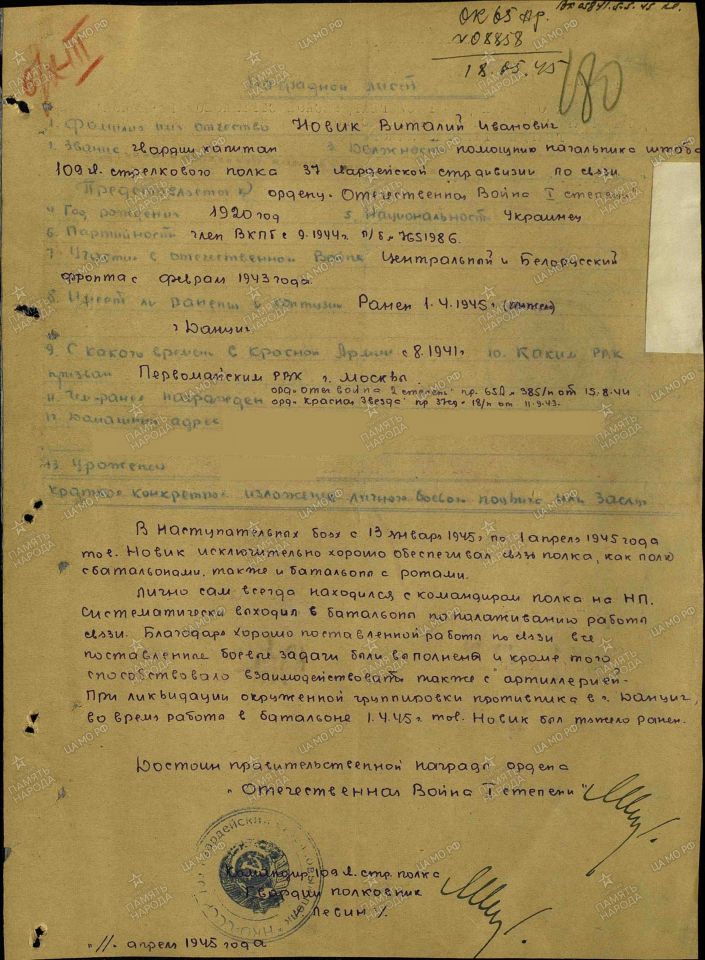 ОК 65 Ар.
№ 08858
18.05.45
180
Наградной лист
1. Фамилия имя отчество Новик Виталий Иванович
2. Звание гвардии капитан 3. Должность помощник начальника штаба
109 гв. стрелкового полка 37 гвардейской стр.дивизии по связи
Представляется к ордену "Отечественная Война I степени"
4. Год рождения 1920 год 5. Национальность Украинец
6. Партийность член ВКПб с 9.1944г. п/б № 7651986.
7. Участие в отечественной Войне Центральный и Белорусский
фронта с февраля 1943 года.
8. Имеет ли ранения и контузии Ранен 1.4.1945г (тяжело)
г Данциг
9. С какого времени в Красной Армии с 8.1941г 10. Каким РВК
призван Первомайским РВК г. Москвы
11. Чем ранее награжден орд. Отеч война 2 степень пр. 65А № 385/н от 15.8.44
орд. Красная Звезда пр 37сд № 18/н от 11.9.43.
12. Домашний адрес
13. Уроженец
Краткое конкретное изложение личного боевого подвига или заслуг
В наступательных боях с 13 января 1945г по 1 апреля 1945 года
тов. Новик исключительно хорошо обеспечивал связь полка, как полк
с батальонами, также и батальона с ротами.
Лично сам всегда находился с командиром полка на НП.
Систематически выходил в батальоны по налаживанию работы
связи. Благодаря хорошо поставленной работы по связи все
поставленные боевые задачи были выполнены и кроме того
способствовало взаимодействовать также с артиллерией.
При ликвидации окруженной группировки противника в г. Данциг,
во время работы в батальоне 1.4.45г. тов. Новик был тяжело ранен.
Достоин правительственной награды ордена
"Отечественная Война I степени"
Командир 109 гв. стр. полка
Гвардии полковник
"11" апреля 1945 года